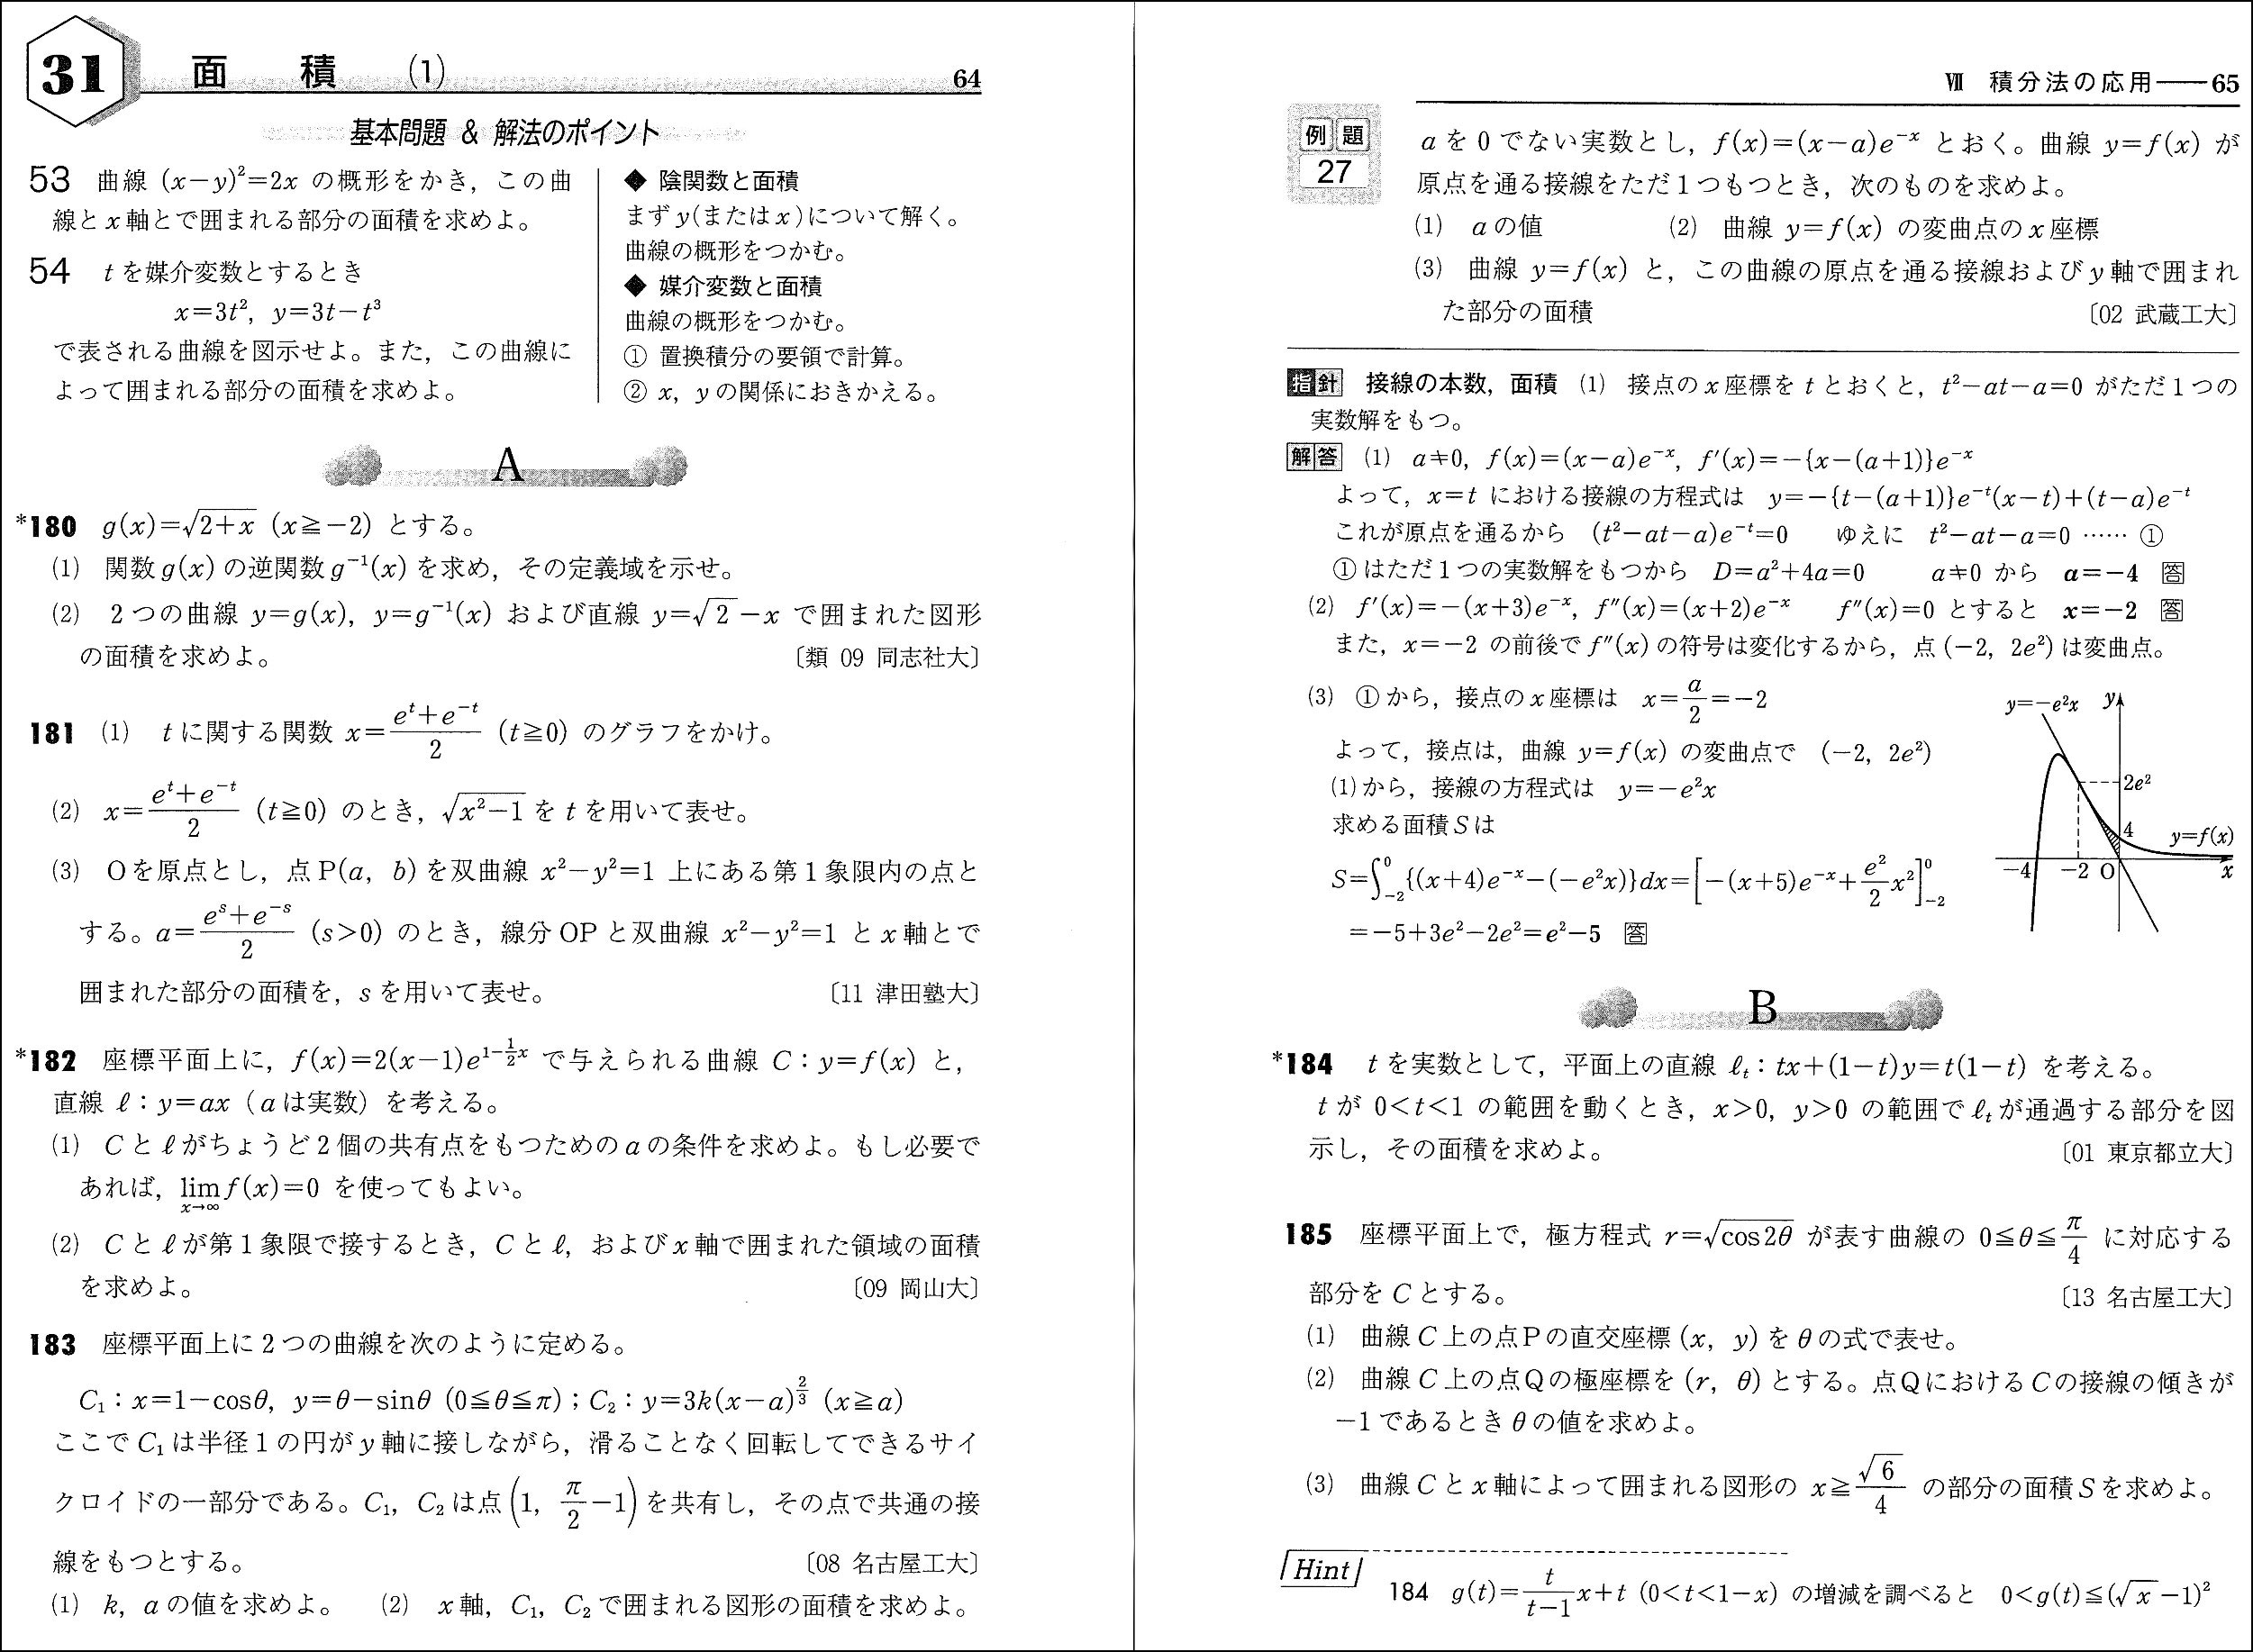 31 面 積 (1) 64
基本問題 & 解法のポイント
53 曲線 (x−y)²=2x の概形をかき，この曲
線と x 軸とで囲まれる部分の面積を求めよ。
54 t を媒介変数とするとき
x=3t², y=3t−t³
で表される曲線を図示せよ。また，この曲線に
よって囲まれる部分の面積を求めよ。
◆ 陰関数と面積
まず y(または x)について解く。
曲線の概形をつかむ。
◆ 媒介変数と面積
曲線の概形をつかむ。
① 置換積分の要領で計算。
② x, y の関係におきかえる。
A
*180 g(x)=√(2+x) (x≧−2) とする。
(1) 関数 g(x) の逆関数 g⁻¹(x) を求め，その定義域を示せ。
(2) 2 つの曲線 y=g(x), y=g⁻¹(x) および直線 y=√2−x で囲まれた図形
の面積を求めよ。 〔類 09 同志社大〕
181 (1) t に関する関数 x=(e^t+e^(−t))/2 (t≧0) のグラフをかけ。
(2) x=(e^t+e^(−t))/2 (t≧0) のとき，√(x²−1) を t を用いて表せ。
(3) Oを原点とし，点 P(a, b) を双曲線 x²−y²=1 上にある第 1 象限内の点と
する。a=(e^s+e^(−s))/2 (s>0) のとき，線分 OP と双曲線 x²−y²=1 と x 軸とで
囲まれた部分の面積を，s を用いて表せ。 〔11 津田塾大〕
*182 座標平面上に，f(x)=2(x−1)e^(1−(1/2)x) で与えられる曲線 C：y=f(x) と，
直線 ℓ：y=ax（a は実数）を考える。
(1) C と ℓ がちょうど 2 個の共有点をもつための a の条件を求めよ。もし必要で
あれば，lim_{x→∞} f(x)=0 を使ってもよい。
(2) C と ℓ が第 1 象限で接するとき，C と ℓ，および x 軸で囲まれた領域の面積
を求めよ。 〔09 岡山大〕
183 座標平面上に 2 つの曲線を次のように定める。
C₁：x=1−cosθ, y=θ−sinθ (0≦θ≦π)；C₂：y=3k(x−a)^(2/3) (x≧a)
ここで C₁ は半径 1 の円が y 軸に接しながら，滑ることなく回転してできるサイ
クロイドの一部分である。C₁, C₂ は点 (1, π/2−1) を共有し，その点で共通の接
線をもつとする。 〔08 名古屋工大〕
(1) k, a の値を求めよ。 (2) x 軸，C₁, C₂ で囲まれる図形の面積を求めよ。
Ⅶ 積分法の応用――65
例題 27
a を 0 でない実数とし，f(x)=(x−a)e^(−x) とおく。曲線 y=f(x) が
原点を通る接線をただ 1 つもつとき，次のものを求めよ。
(1) a の値 (2) 曲線 y=f(x) の変曲点の x 座標
(3) 曲線 y=f(x) と，この曲線の原点を通る接線および y 軸で囲まれ
た部分の面積 〔02 武蔵工大〕
指針 接線の本数，面積 (1) 接点の x 座標を t とおくと，t²−at−a=0 がただ 1 つの
実数解をもつ。
解答 (1) a≠0, f(x)=(x−a)e^(−x), f′(x)=−{x−(a+1)}e^(−x)
よって，x=t における接線の方程式は y=−{t−(a+1)}e^(−t)(x−t)+(t−a)e^(−t)
これが原点を通るから (t²−at−a)e^(−t)=0 ゆえに t²−at−a=0 …… ①
① はただ 1 つの実数解をもつから D=a²+4a=0 a≠0 から a=−4 答
(2) f′(x)=−(x+3)e^(−x), f″(x)=(x+2)e^(−x) f″(x)=0 とすると x=−2 答
また，x=−2 の前後で f″(x) の符号は変化するから，点 (−2, 2e²) は変曲点。
(3) ① から，接点の x 座標は x=a/2=−2
よって，接点は，曲線 y=f(x) の変曲点で (−2, 2e²)
(1) から，接線の方程式は y=−e²x
求める面積 S は
S=∫_{−2}^{0}{(x+4)e^(−x)−(−e²x)}dx=[−(x+5)e^(−x)+(e²/2)x²]_{−2}^{0}
=−5+3e²−2e²=e²−5 答
y=−e²x y
2e²
4 y=f(x)
−4 −2 O x
B
*184 t を実数として，平面上の直線 ℓ_t：tx+(1−t)y=t(1−t) を考える。
t が 0<t<1 の範囲を動くとき，x>0, y>0 の範囲で ℓ_t が通過する部分を図
示し，その面積を求めよ。 〔01 東京都立大〕
185 座標平面上で，極方程式 r=√(cos2θ) が表す曲線の 0≦θ≦π/4 に対応する
部分を C とする。 〔13 名古屋工大〕
(1) 曲線 C 上の点Pの直交座標 (x, y) を θ の式で表せ。
(2) 曲線 C 上の点Qの極座標を (r, θ) とする。点Qにおける C の接線の傾きが
−1 であるとき θ の値を求めよ。
(3) 曲線 C と x 軸によって囲まれる図形の x≧√6/4 の部分の面積 S を求めよ。
Hint 184 g(t)=t/(t−1)x+t (0<t<1−x) の増減を調べると 0<g(t)≦(√x−1)²